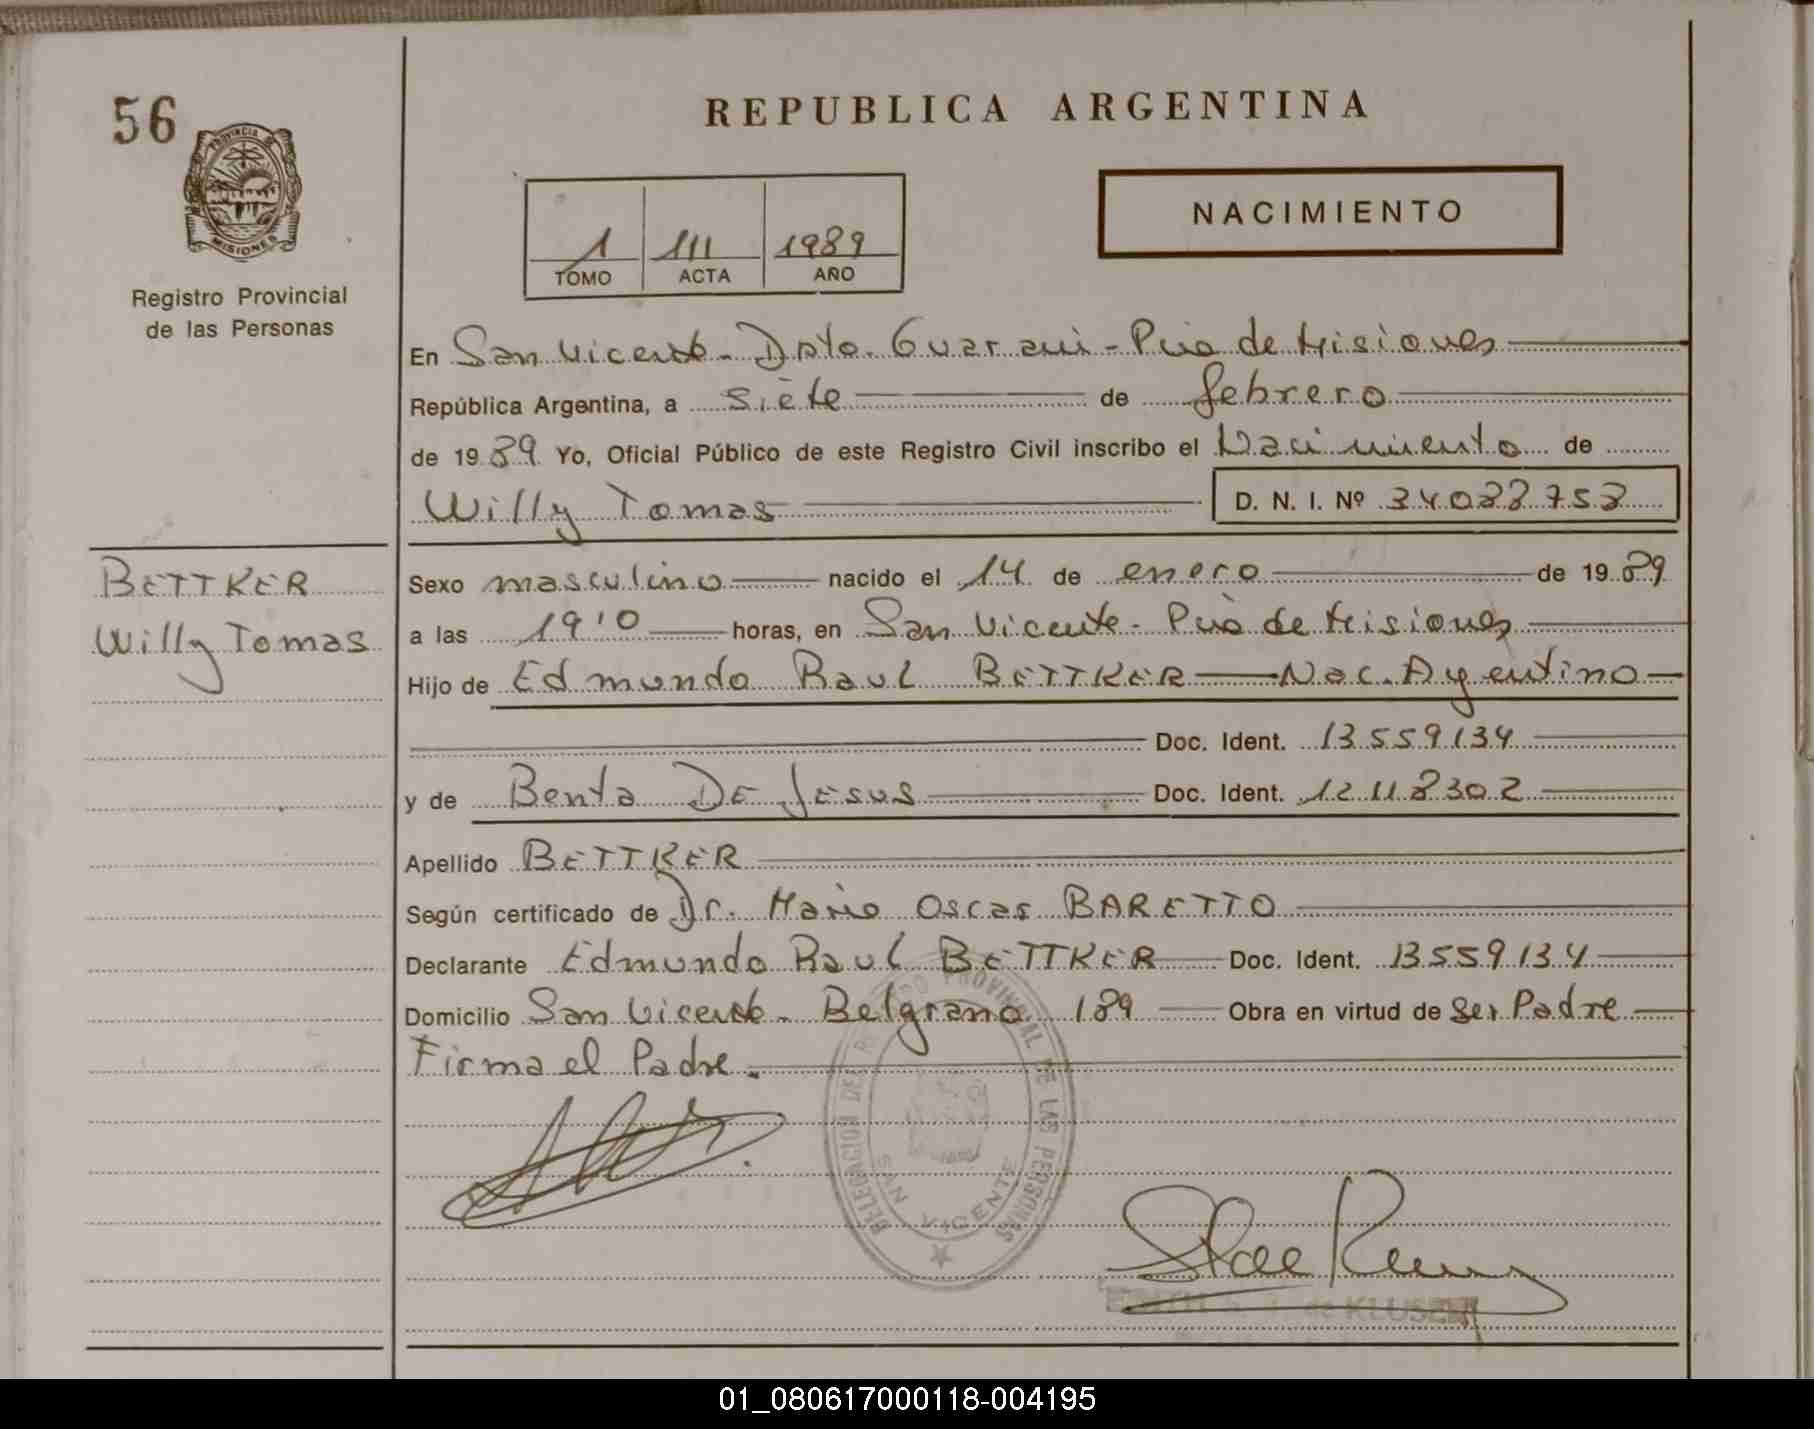 56
PROVINCIA DE
MISIONES
Registro Provincial
de las Personas
BETTKER
Willy Tomas
REPUBLICA ARGENTINA
NACIMIENTO
1 111 1989
TOMO ACTA AÑO
En San Vicente - Dpto. Guarani - Pcia de Misiones
República Argentina, a siete de febrero
de 1989 Yo, Oficial Público de este Registro Civil inscribo el Nacimiento de
Willy Tomas D. N. I. Nº 34033753
Sexo masculino nacido el 14 de enero de 1989
a las 19'10 horas, en San Vicente - Pcia de Misiones
Hijo de Edmundo Raul BETTKER Nac. Argentino
Doc. Ident. 13559134
y de Benta DE JESUS Doc. Ident. 12118302
Apellido BETTKER
Según certificado de Dr. Mario Oscar BARETTO
Declarante Edmundo Raul BETTKER Doc. Ident. 13559134
Domicilio San Vicente - Belgrano 189 Obra en virtud de Ser Padre
Firma el Padre.
DELEGACION DEL REGISTRO PROVINCIAL DE LAS PERSONAS
SAN VICENTE
de KLUSEN
01_080617000118-004195